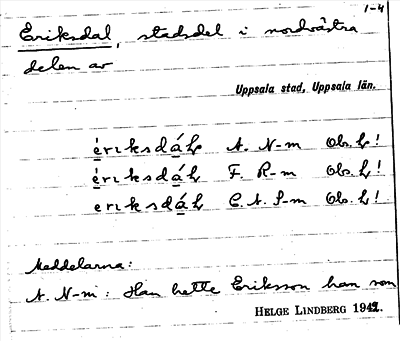 1-4
Eriksdal, stadsdel i nordvästra
delen av
Uppsala stad, Uppsala län.
èrıksdáḷ A. N-m Obs. ḷ!
èrıksdáḷ F. R-m Obs. ḷ!
erıksdáḷ C. A. P-m Obs. ḷ!
Meddelarna:
A. N-m: Han hette Eriksson han som
HELGE LINDBERG 1942.